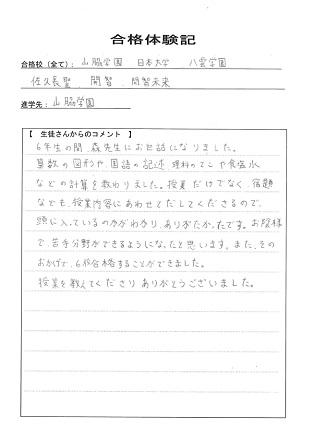 合格体験記
合格校（全て）： 山脇学園 日本大学 八雲学園
佐久長聖、開智、開智未来
進学先： 山脇学園
【 生徒さんからのコメント 】
6年生の間、森先生にお世話になりました。
算数の図形や、国語の記述、理科のてこや食塩水
などの計算を教わりました。授業だけでなく、宿題
なども、授業内容にあわせてだしてくださるので、
頭に入っているのかがわかり、ありがたかったです。お陰様
で、苦手分野ができるようになったと思います。また、その
おかげで、6校合格することができました。
授業を教えてくださりありがとうございました。